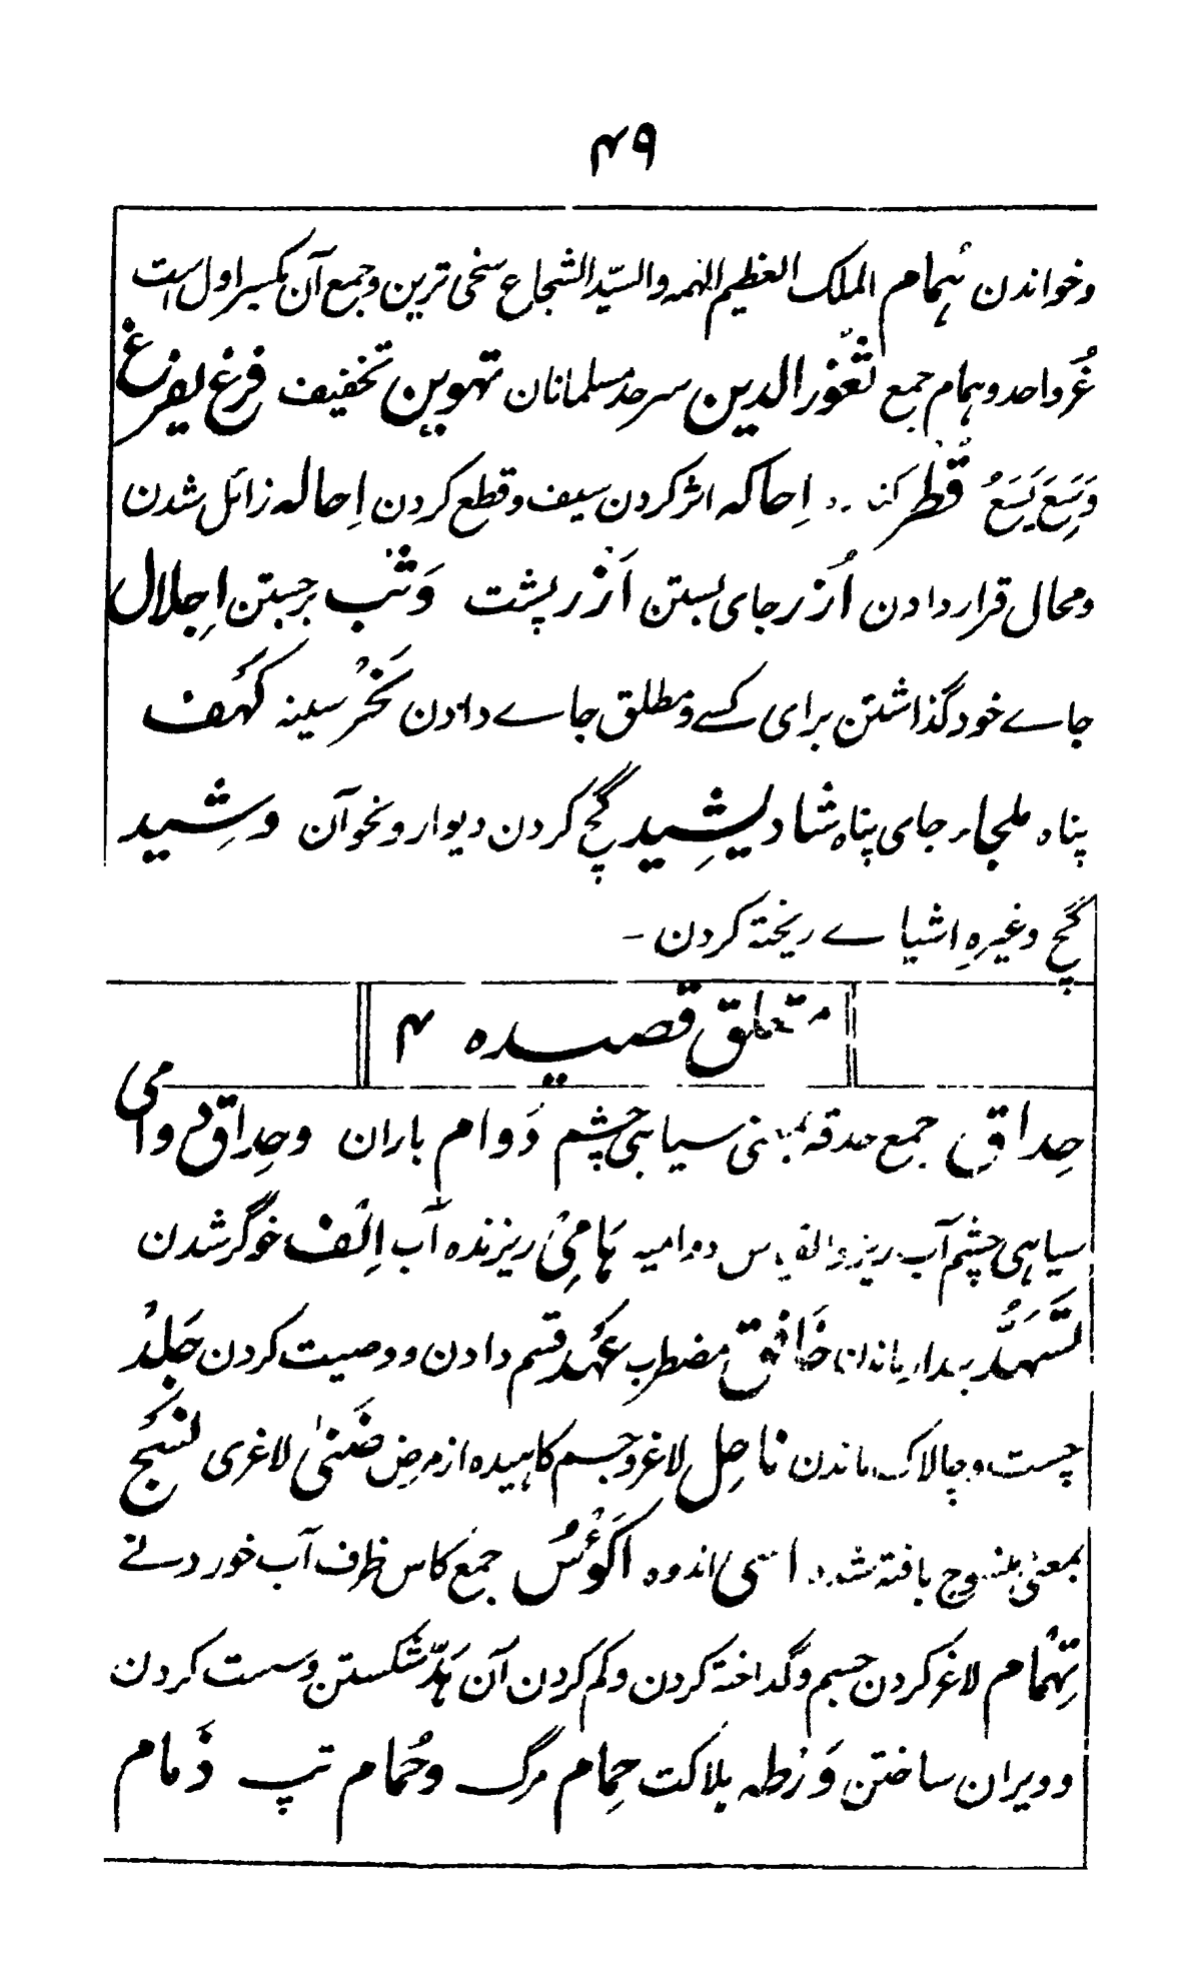 ۴۹
وخواندن ہُمام الملک العظیم الہمہ والسیّد الشجاع سخی ترین وجمع آن بکسر اول است
غُر واحد وہمام جمع ثُغور الدین سرحد مسلمانان تہوین تخفیف فرغ یفرغ
وَسِعَ یَسَعُ قُطْر اِحاکہ اثر کردن سیف وقطع کردن اِحالہ زائل شدن
ومحال قرار دادن اُزر جای بستن اَزْر پشت وَثْب برجستن اِجلال
جاے خود گذاشتن برای کسے ومطلق جاے دادن نَحْر سینہ کَہف
پناہ ملجاء جای پناہ شاد یشِید گچ کردن دیوار ونحو آن وشِید
گچ وغیرہِ اشیاے ریختہ کردن ۔
متعلق قصیدہ ۴
حِداق جمع حدقہ بمعنی سیاہی چشم دَوام باران وحِداق دوامی
سیاہی چشم آب ریز ہَامِیْ ریزندہ آب اِلْف خوگر شدن
تَسَہُّد خَافق مضطرب عَہْد قسم دادن ووصیت کردن جَلْد
چست وچالاک ماندن ناحِل لاغر وجسم کاہیدہ از مرض ضَنیٰ لاغری نَسْج
بمعنی منسوج بافتہ شدہ اسیٰ اندوہ اَکؤُس جمع کاس ظرف آب خوردنے
تِہْمام لاغر کردن جسم وگداختہ کردن وکم کردن آن ہَدّ شکستن وسست کردن
وویران ساختن وَرْطہ ہلاکت حِمام مرگ وحُمام تپ ذَمام